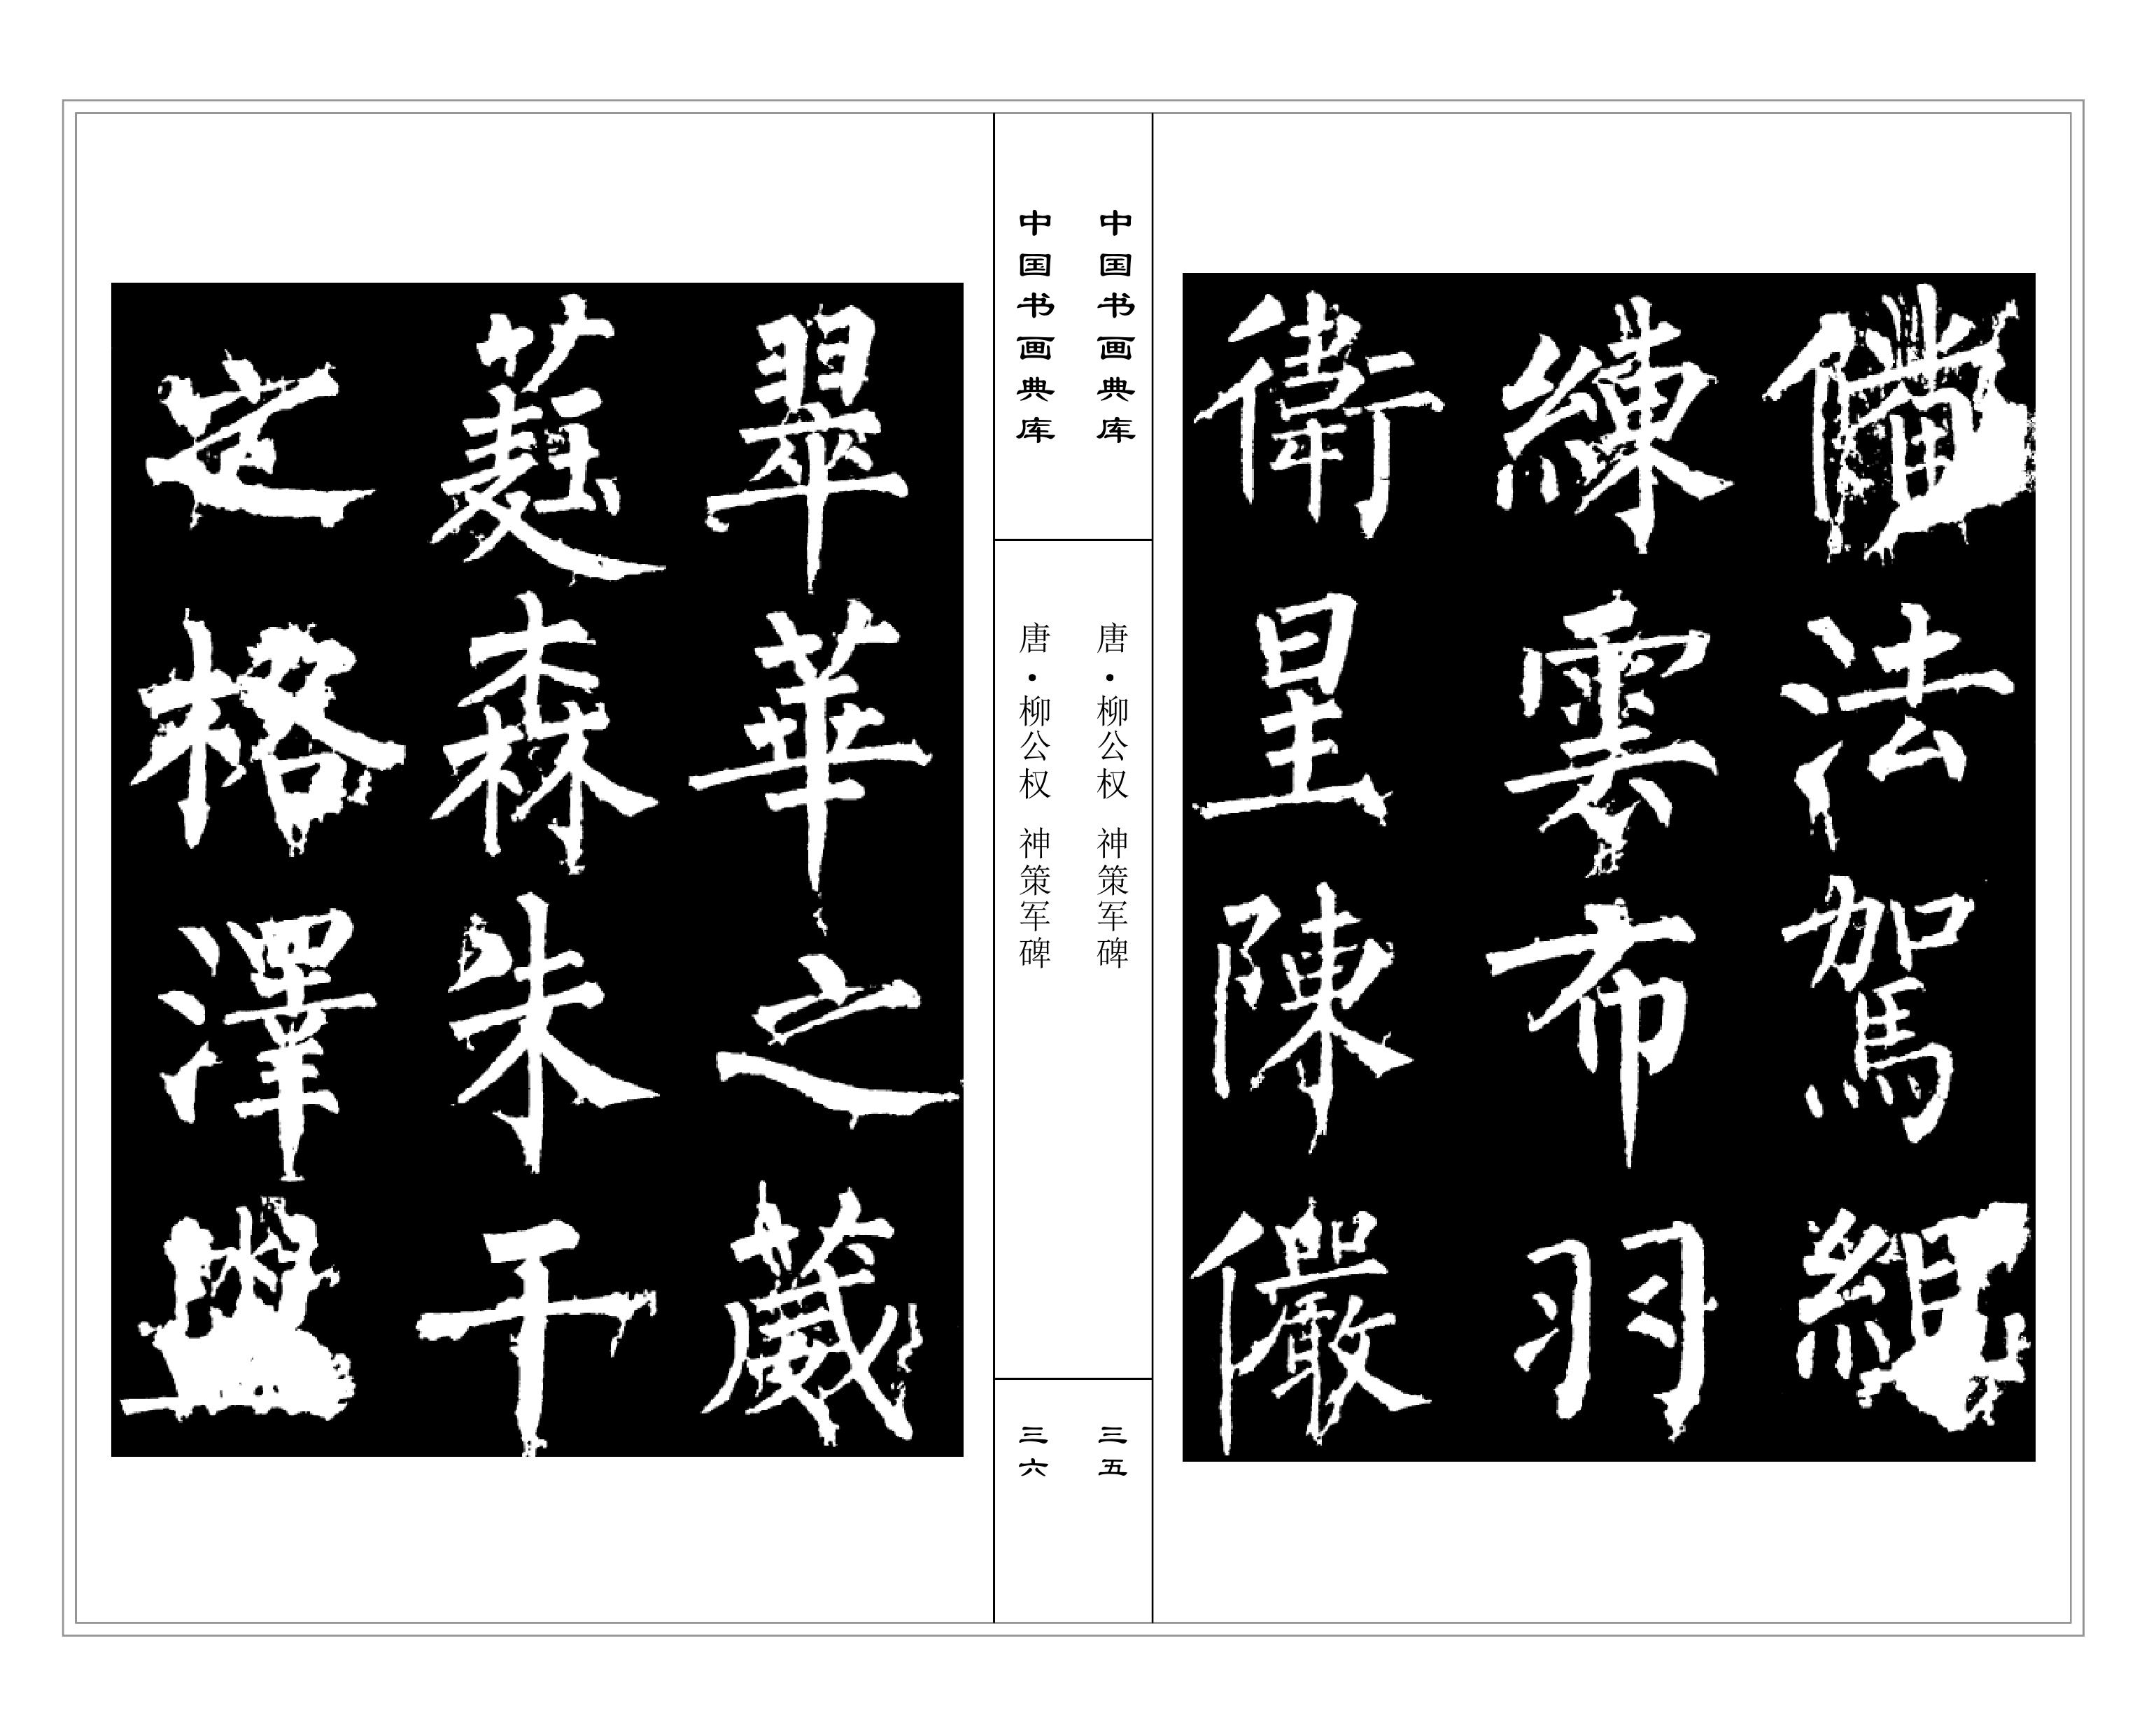 儀法駕組
練雲布羽
衛星陳儼
中国书画典库
唐·柳公权 神策军碑
三五
中国书画典库
唐·柳公权 神策军碑
三六
翠華之葳
蕤森朱干
之格澤